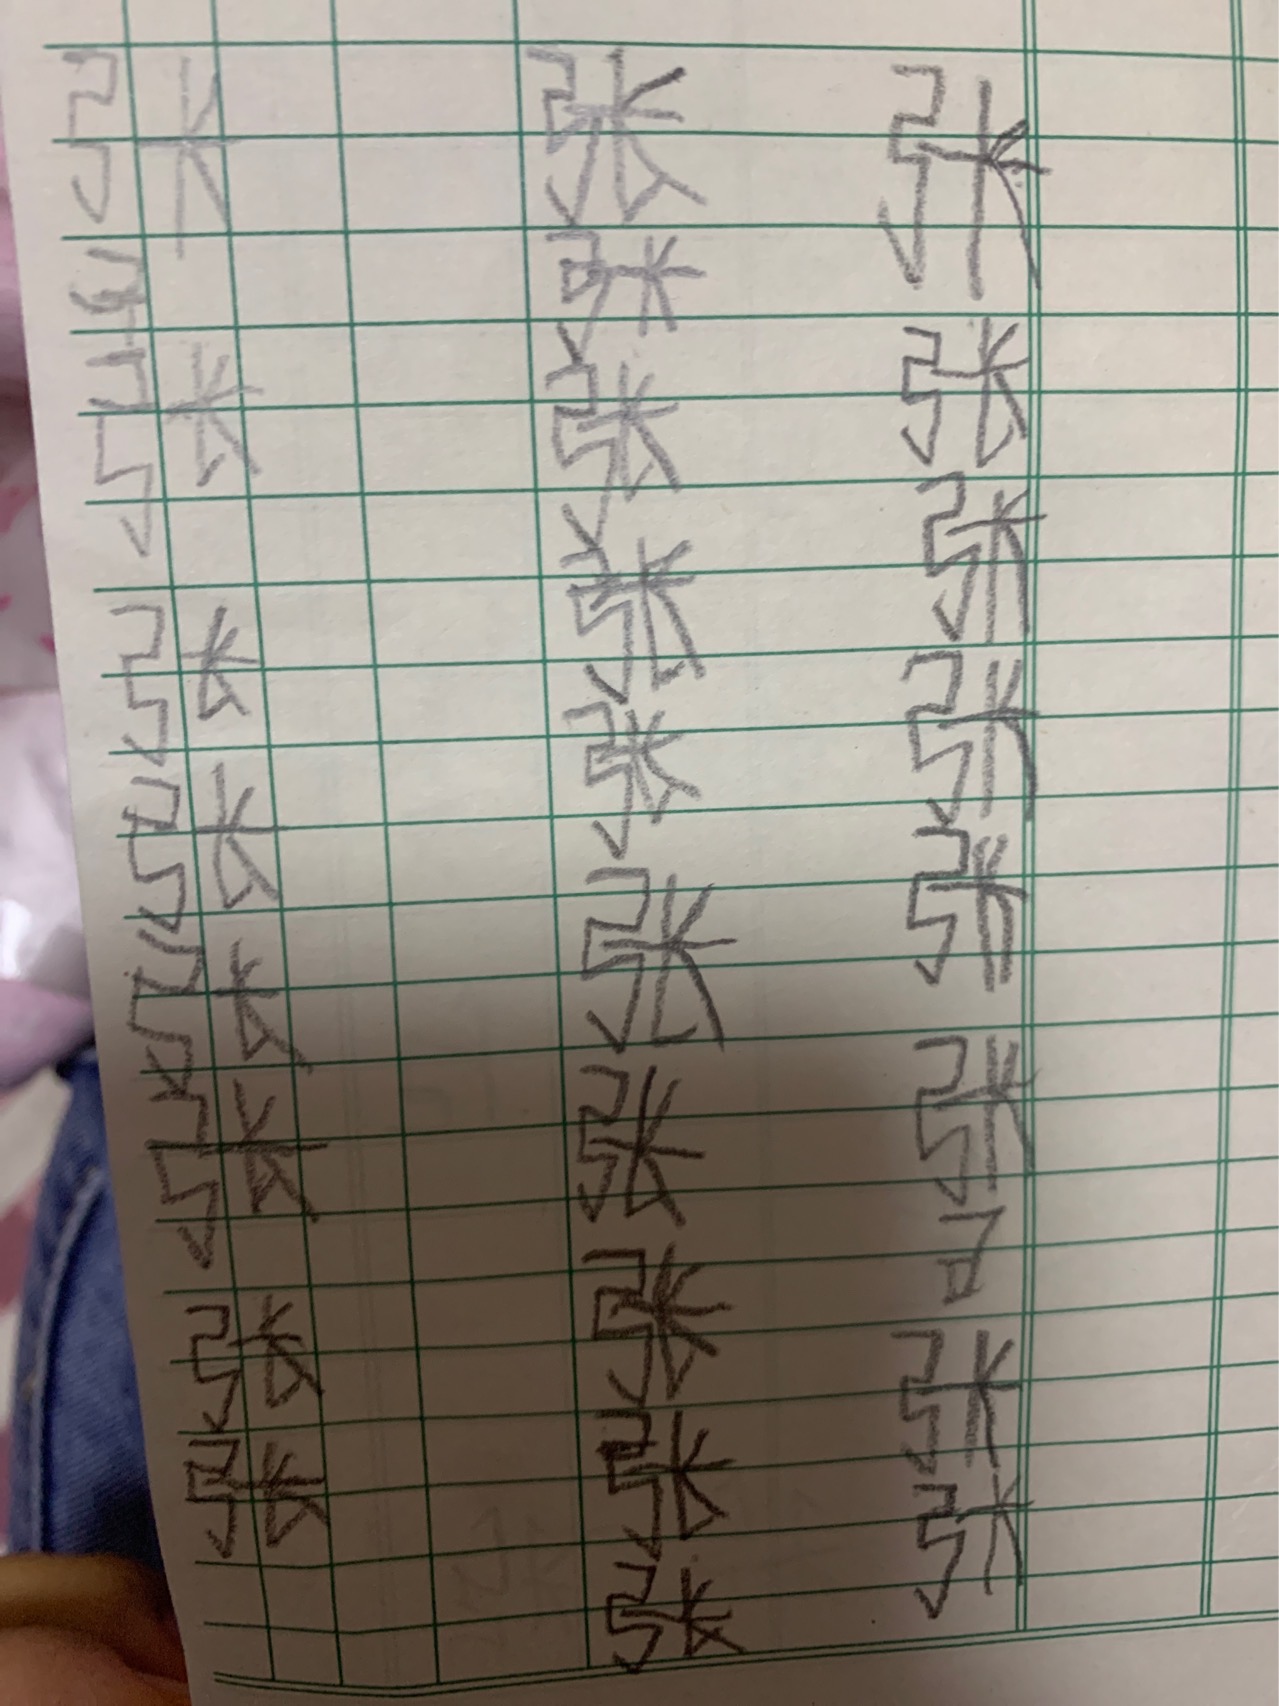 张张张张张张张张
张张张张张张张张张张
张张张张张张张张